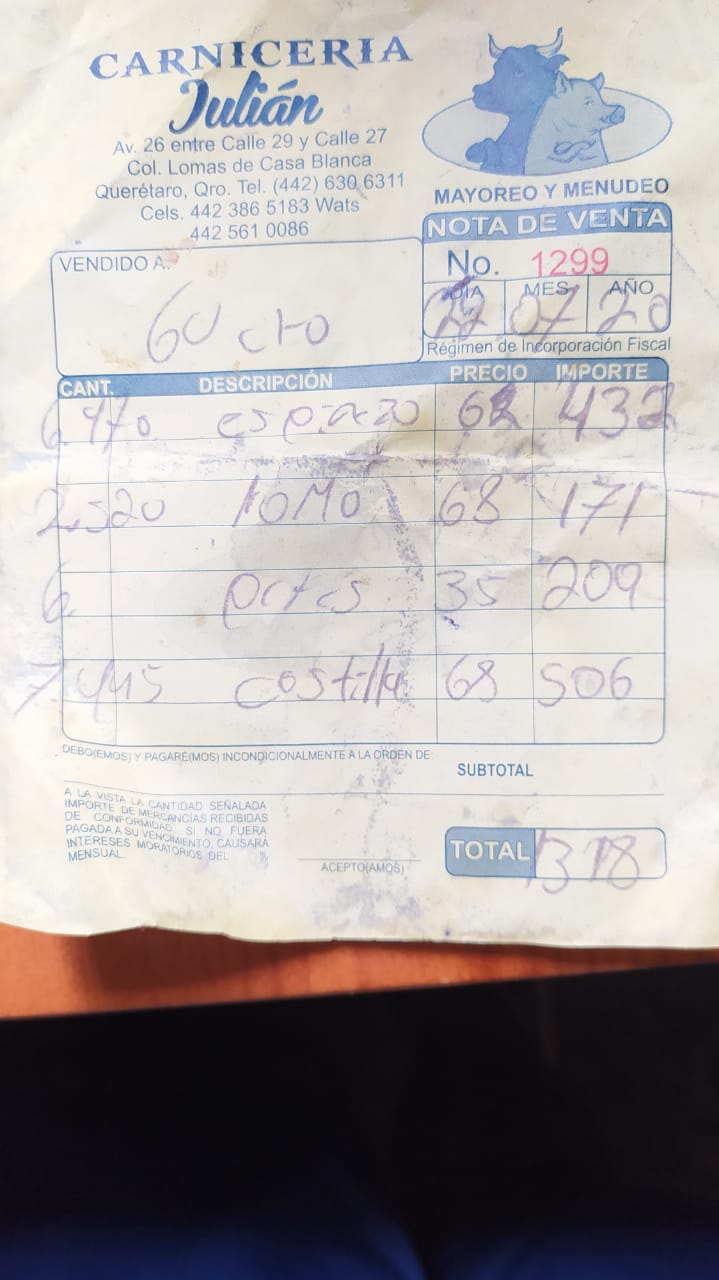 CARNICERIA
Julián
Av. 26 entre Calle 29 y Calle 27
Col. Lomas de Casa Blanca
Querétaro, Qro. Tel. (442) 630 6311
Cels. 442 386 5183 Wats
442 561 0086
MAYOREO Y MENUDEO
NOTA DE VENTA
No. 1299
DIA MES AÑO
22 07 20
Régimen de Incorporación Fiscal
VENDIDO A:
CANT. DESCRIPCIÓN PRECIO IMPORTE
espinazo 432
2,520 lomo 68 171
6 35 209
7,445 costilla 68 506
DEBO(EMOS) Y PAGARÉ(MOS) INCONDICIONALMENTE A LA ORDEN DE:
SUBTOTAL
A LA VISTA LA CANTIDAD SEÑALADA
IMPORTE DE MERCANCÍAS RECIBIDAS
DE CONFORMIDAD. SI NO FUERA
PAGADA A SU VENCIMIENTO, CAUSARÁ
INTERESES MORATORIOS DEL %
MENSUAL.
ACEPTO(AMOS)
TOTAL 1318